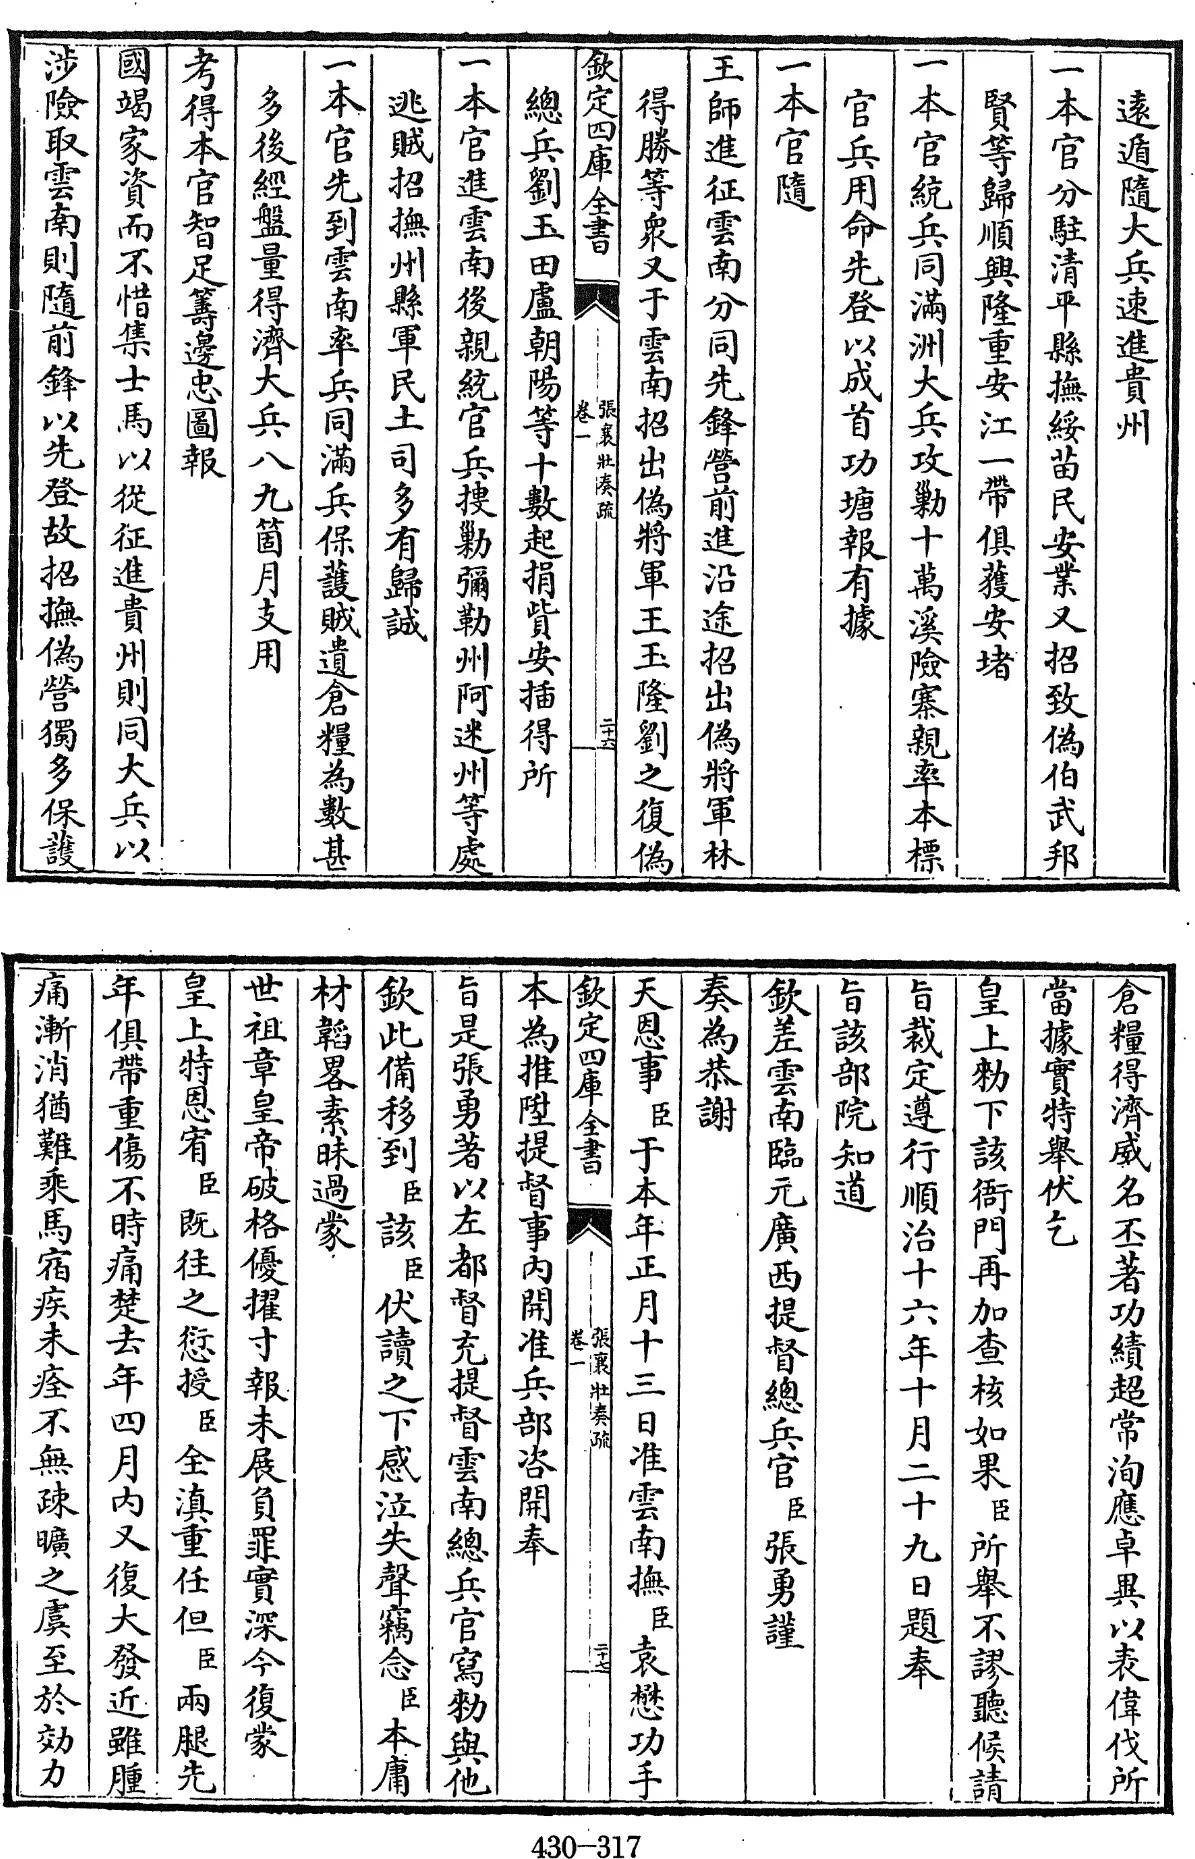 遠遁隨大兵速進貴州
一本官分駐清平縣撫綏苗民安業又招致偽伯武邦
賢等歸順興隆重安江一帶俱獲安堵
一本官統兵同滿洲大兵攻勦十萬溪險寨親率本標
官兵用命先登以成首功塘報有據
一本官隨
王師進征雲南分同先鋒營前進沿途招出偽將軍林
得勝等衆又于雲南招出偽將軍王玉隆劉之復偽
欽定四庫全書
張襄壯奏疏
卷一
二十六
總兵劉玉田盧朝陽等十數起捐貲安插得所
一本官進雲南後親統官兵搜勦彌勒州阿迷州等處
逃賊招撫州縣軍民土司多有歸誠
一本官先到雲南率兵同滿兵保護賊遺倉糧為數甚
多後經盤量得濟大兵八九箇月支用
考得本官智足籌邊忠圖報
國竭家資而不惜集士馬以從征進貴州則同大兵以
涉險取雲南則隨前鋒以先登故招撫偽營獨多保護
倉糧得濟威名丕著功績超常洵應卓異以表偉伐所
當據實特舉伏乞
皇上勑下該衙門再加查核如果臣所舉不謬聽候請
旨裁定遵行順治十六年十月二十九日題奉
旨該部院知道
欽差雲南臨元廣西提督總兵官臣張勇謹
奏為恭謝
天恩事臣于本年正月十三日准雲南撫臣袁懋功手
欽定四庫全書
張襄壯奏疏
卷一
二十七
本為推陞提督事內開准兵部咨開奉
旨是張勇著以左都督充提督雲南總兵官寫勑與他
欽此備移到臣該臣伏讀之下感泣失聲竊念臣本庸
材韜畧素昧過蒙
世祖章皇帝破格優擢寸報未展負罪實深今復蒙
皇上特恩宥臣既往之愆授臣全滇重任但臣兩腿先
年俱帶重傷不時痛楚去年四月內又復大發近雖腫
痛漸消猶難乘馬宿疾未痊不無疎曠之虞至於効力
430-317